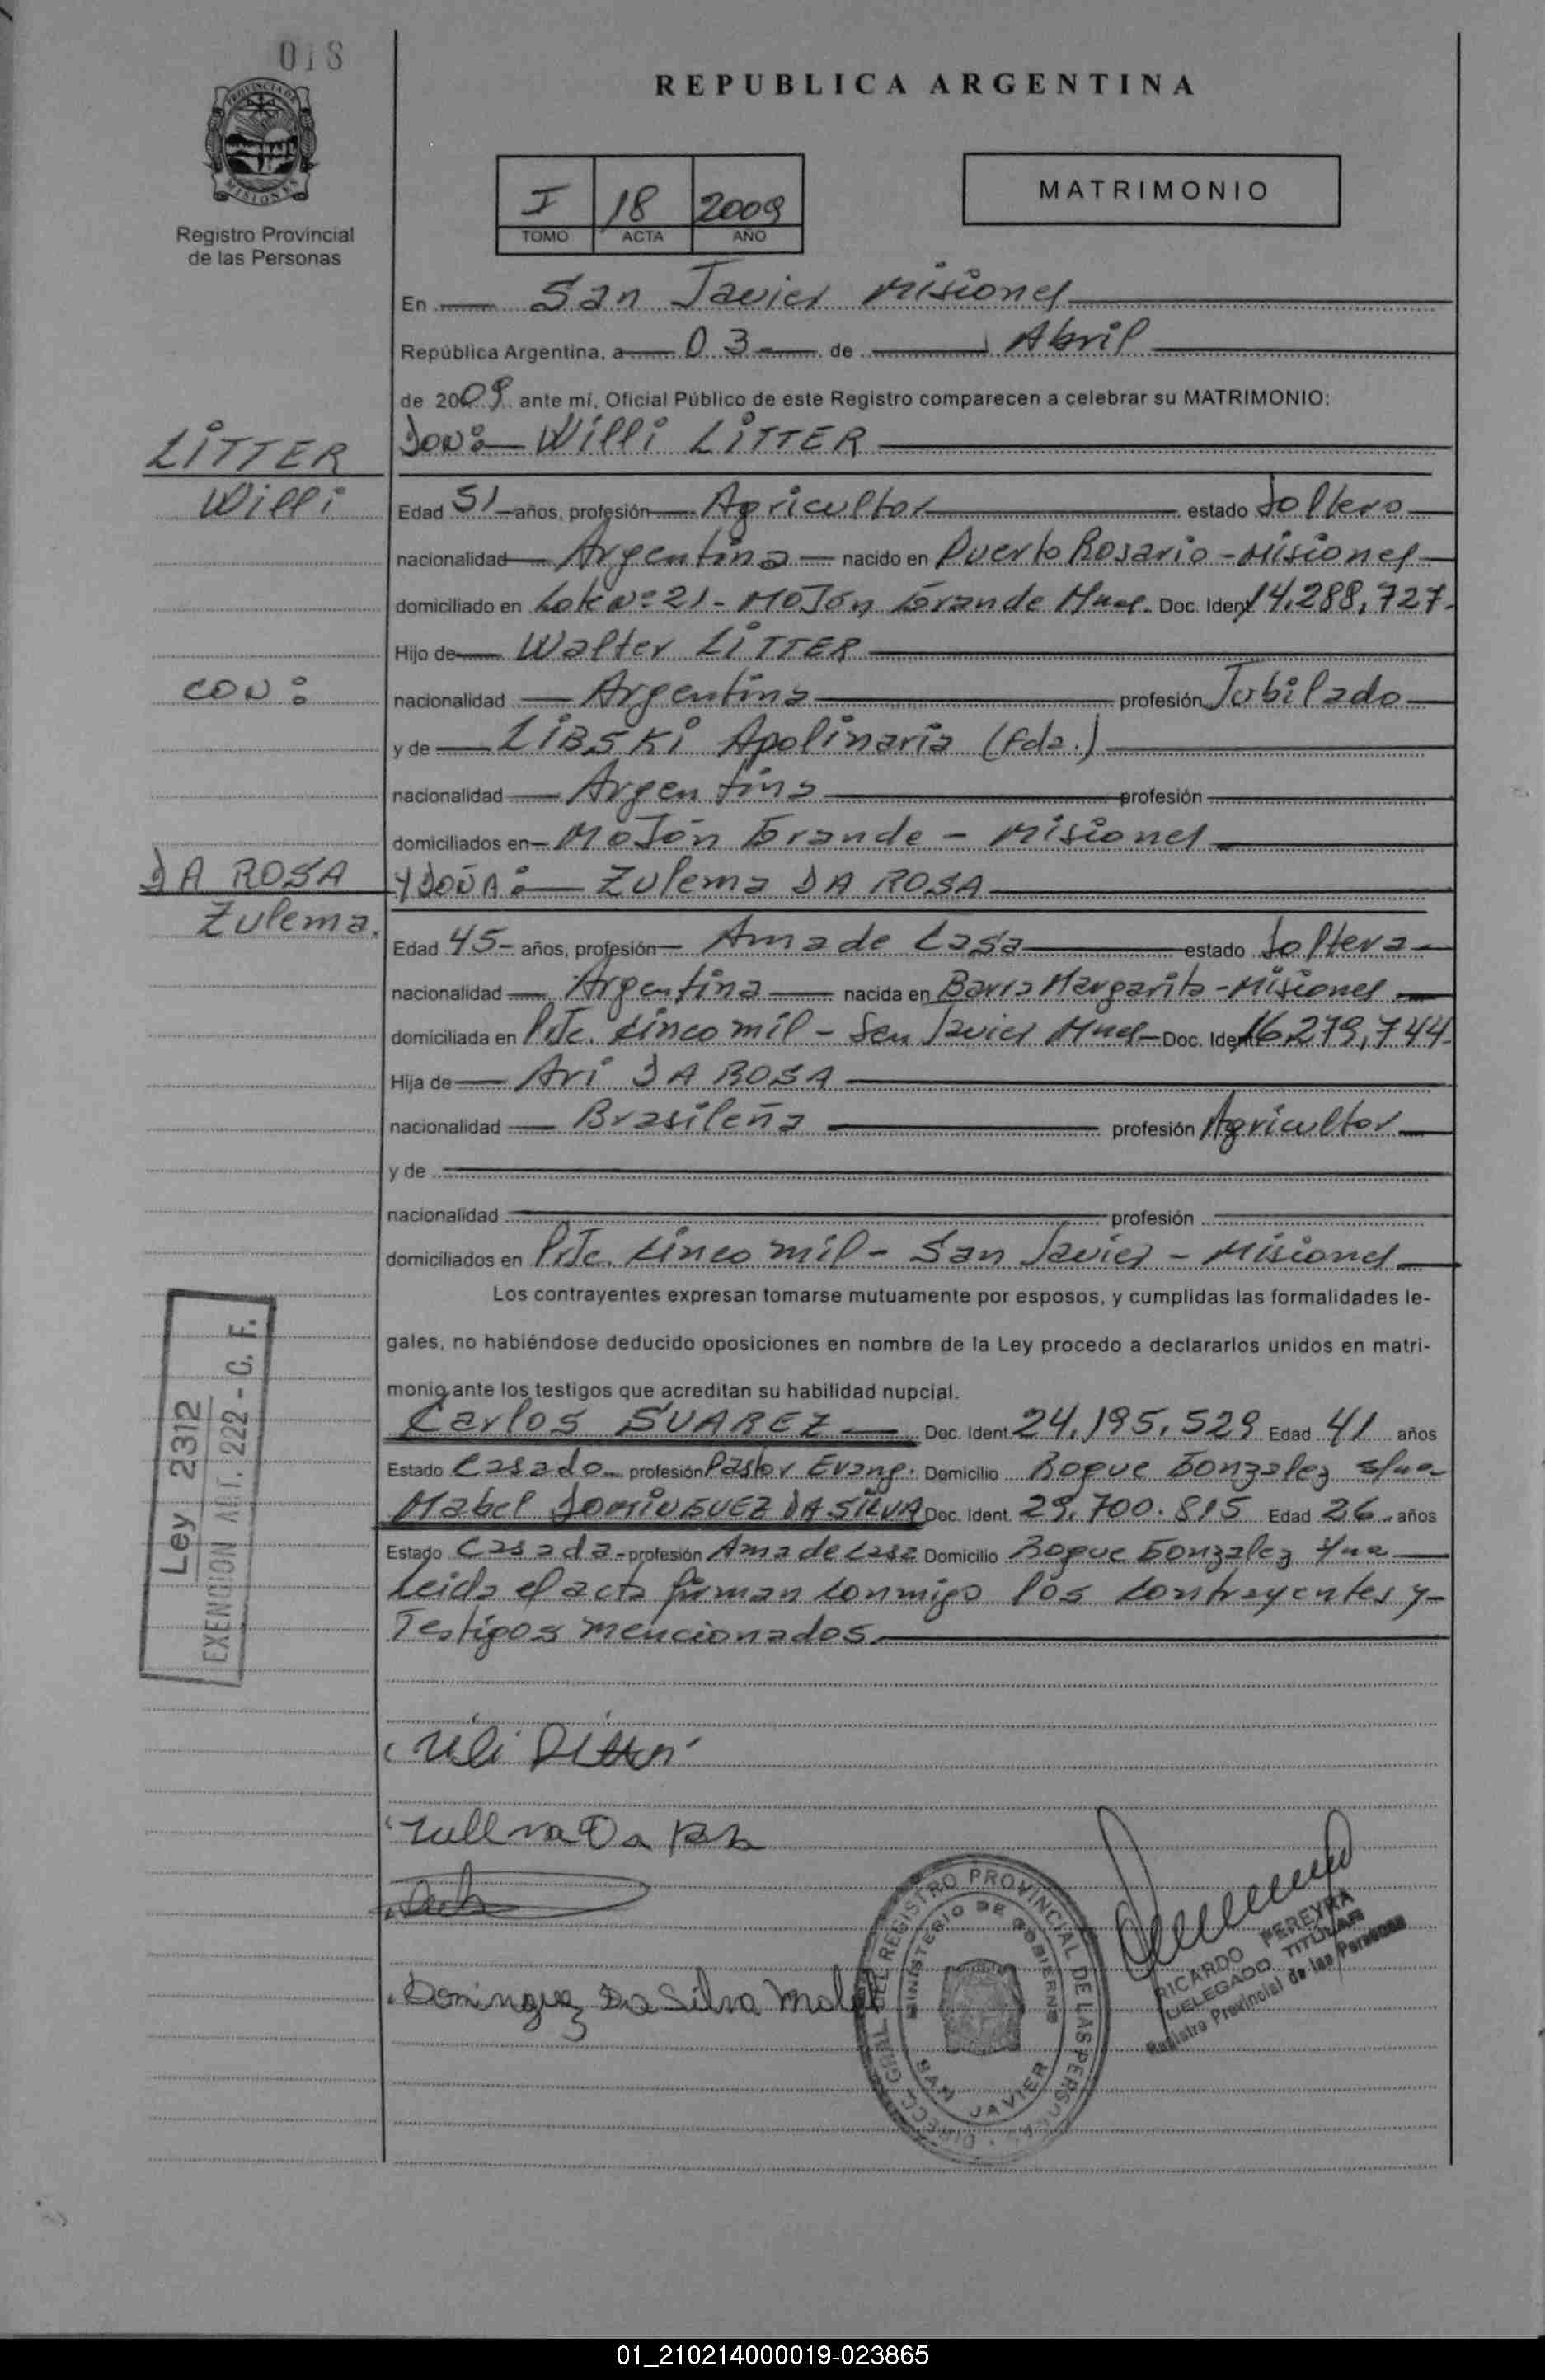 018
REPUBLICA ARGENTINA
PROVINCIA DE
MISIONES
Registro Provincial
de las Personas
I 18 2009
TOMO ACTA AÑO
MATRIMONIO
En San Javier Misiones
República Argentina, a 03 de Abril
de 2009 ante mí, Oficial Público de este Registro comparecen a celebrar su MATRIMONIO:
LITTER
Willi
DON: Willi LITTER
Edad 51 años, profesión Agricultor estado Soltero
nacionalidad Argentina nacido en Puerto Rosario - Misiones
domiciliado en Lote Nº 21 - Mojón Grande Mnes. Doc. Ident 14.288.727.
Hijo de Walter LITTER
CON:
nacionalidad Argentina profesión Jubilado
y de LIBSKI Apolinaria (Fda.)
nacionalidad Argentina profesión
domiciliados en Mojón Grande - Misiones
DA ROSA
Zulema.
Y DOÑA: Zulema DA ROSA
Edad 45 - años, profesión Ama de Casa estado Soltera
nacionalidad Argentina nacida en Barra Margarita - Misiones
domiciliada en Pje. Cinco mil - San Javier Mnes - Doc. Ident 16.279.744.
Hija de Ari DA ROSA
nacionalidad Brasileña profesión Agricultor
y de
nacionalidad profesión
domiciliados en Pje. Cinco mil - San Javier - Misiones
Los contrayentes expresan tomarse mutuamente por esposos, y cumplidas las formalidades le-
gales, no habiéndose deducido oposiciones en nombre de la Ley procedo a declararlos unidos en matri-
monio ante los testigos que acreditan su habilidad nupcial.
Carlos SUAREZ Doc. Ident. 24.195.529 Edad 41 años
Estado Casado profesión Pastor Evang. Domicilio Roque Gonzalez s/n
Mabel DOMINGUEZ DA SILVA Doc. Ident. 29.700.815 Edad 26 años
Estado Casada - profesión Ama de Casa Domicilio Roque Gonzalez
Leida el acta firman conmigo los contrayentes y
Testigos mencionados.
Ley 2312
EXENCION ART. 222 - C. F.
Zullma Da
Dominguez Da Silva Mabel
DIRECC GRAL DEL REGISTRO PROVINCIAL DE LAS PERSONAS
MINISTERIO DE GOBIERNO
SAN JAVIER
RICARDO PEREYRA
DELEGADO TITULAR
Registro Provincial de las Personas
01_210214000019-023865